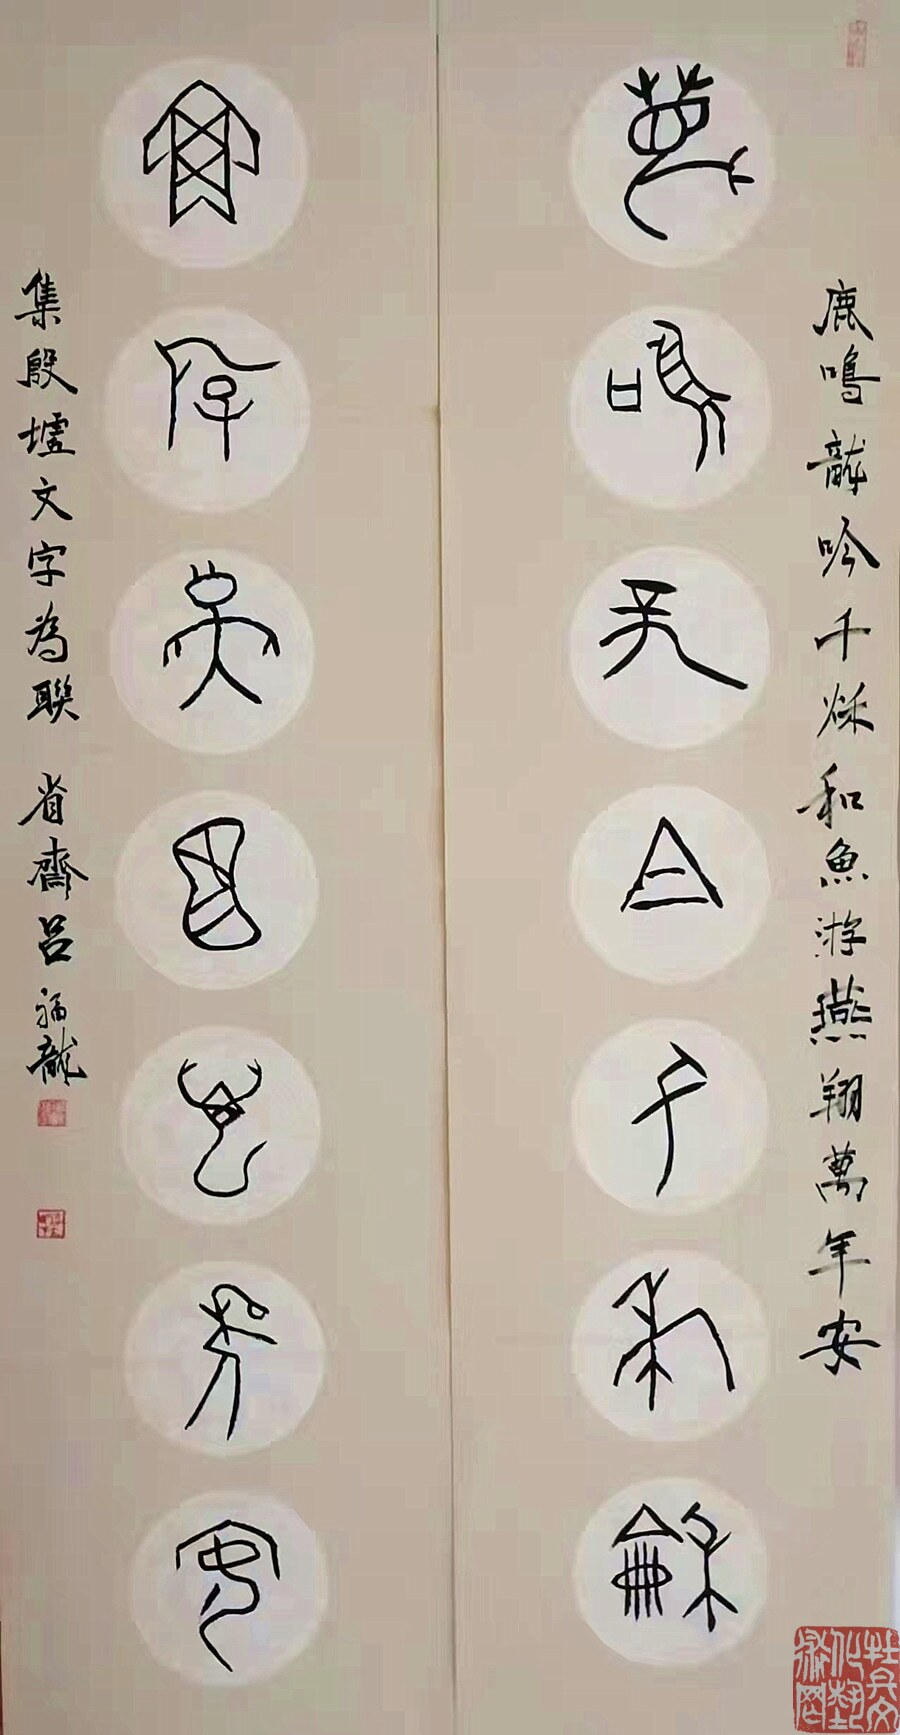 鹿鳴龍吟千秌和魚游燕翔萬年安
鹿鳴龍今千秋龢
魚游燕翔萬年安
集殷墟文字為聯 省齋呂福龍